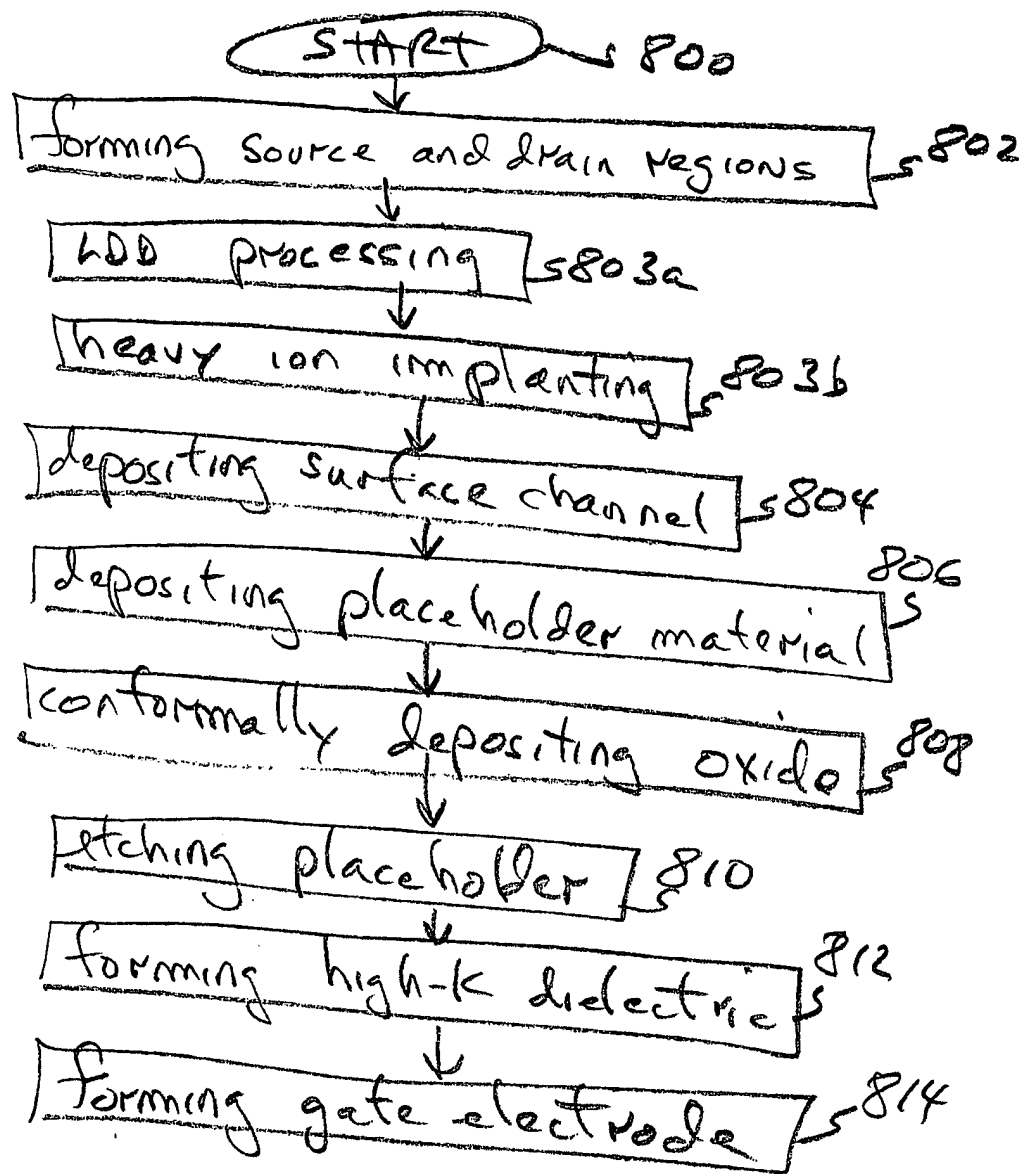 START 800
forming source and drain regions 802
LDD processing 803a
heavy ion implanting 803b
depositing surface channel 804
depositing placeholder material 806
conformally depositing oxide 808
etching placeholder 810
forming high-k dielectric 812
forming gate electrode 814